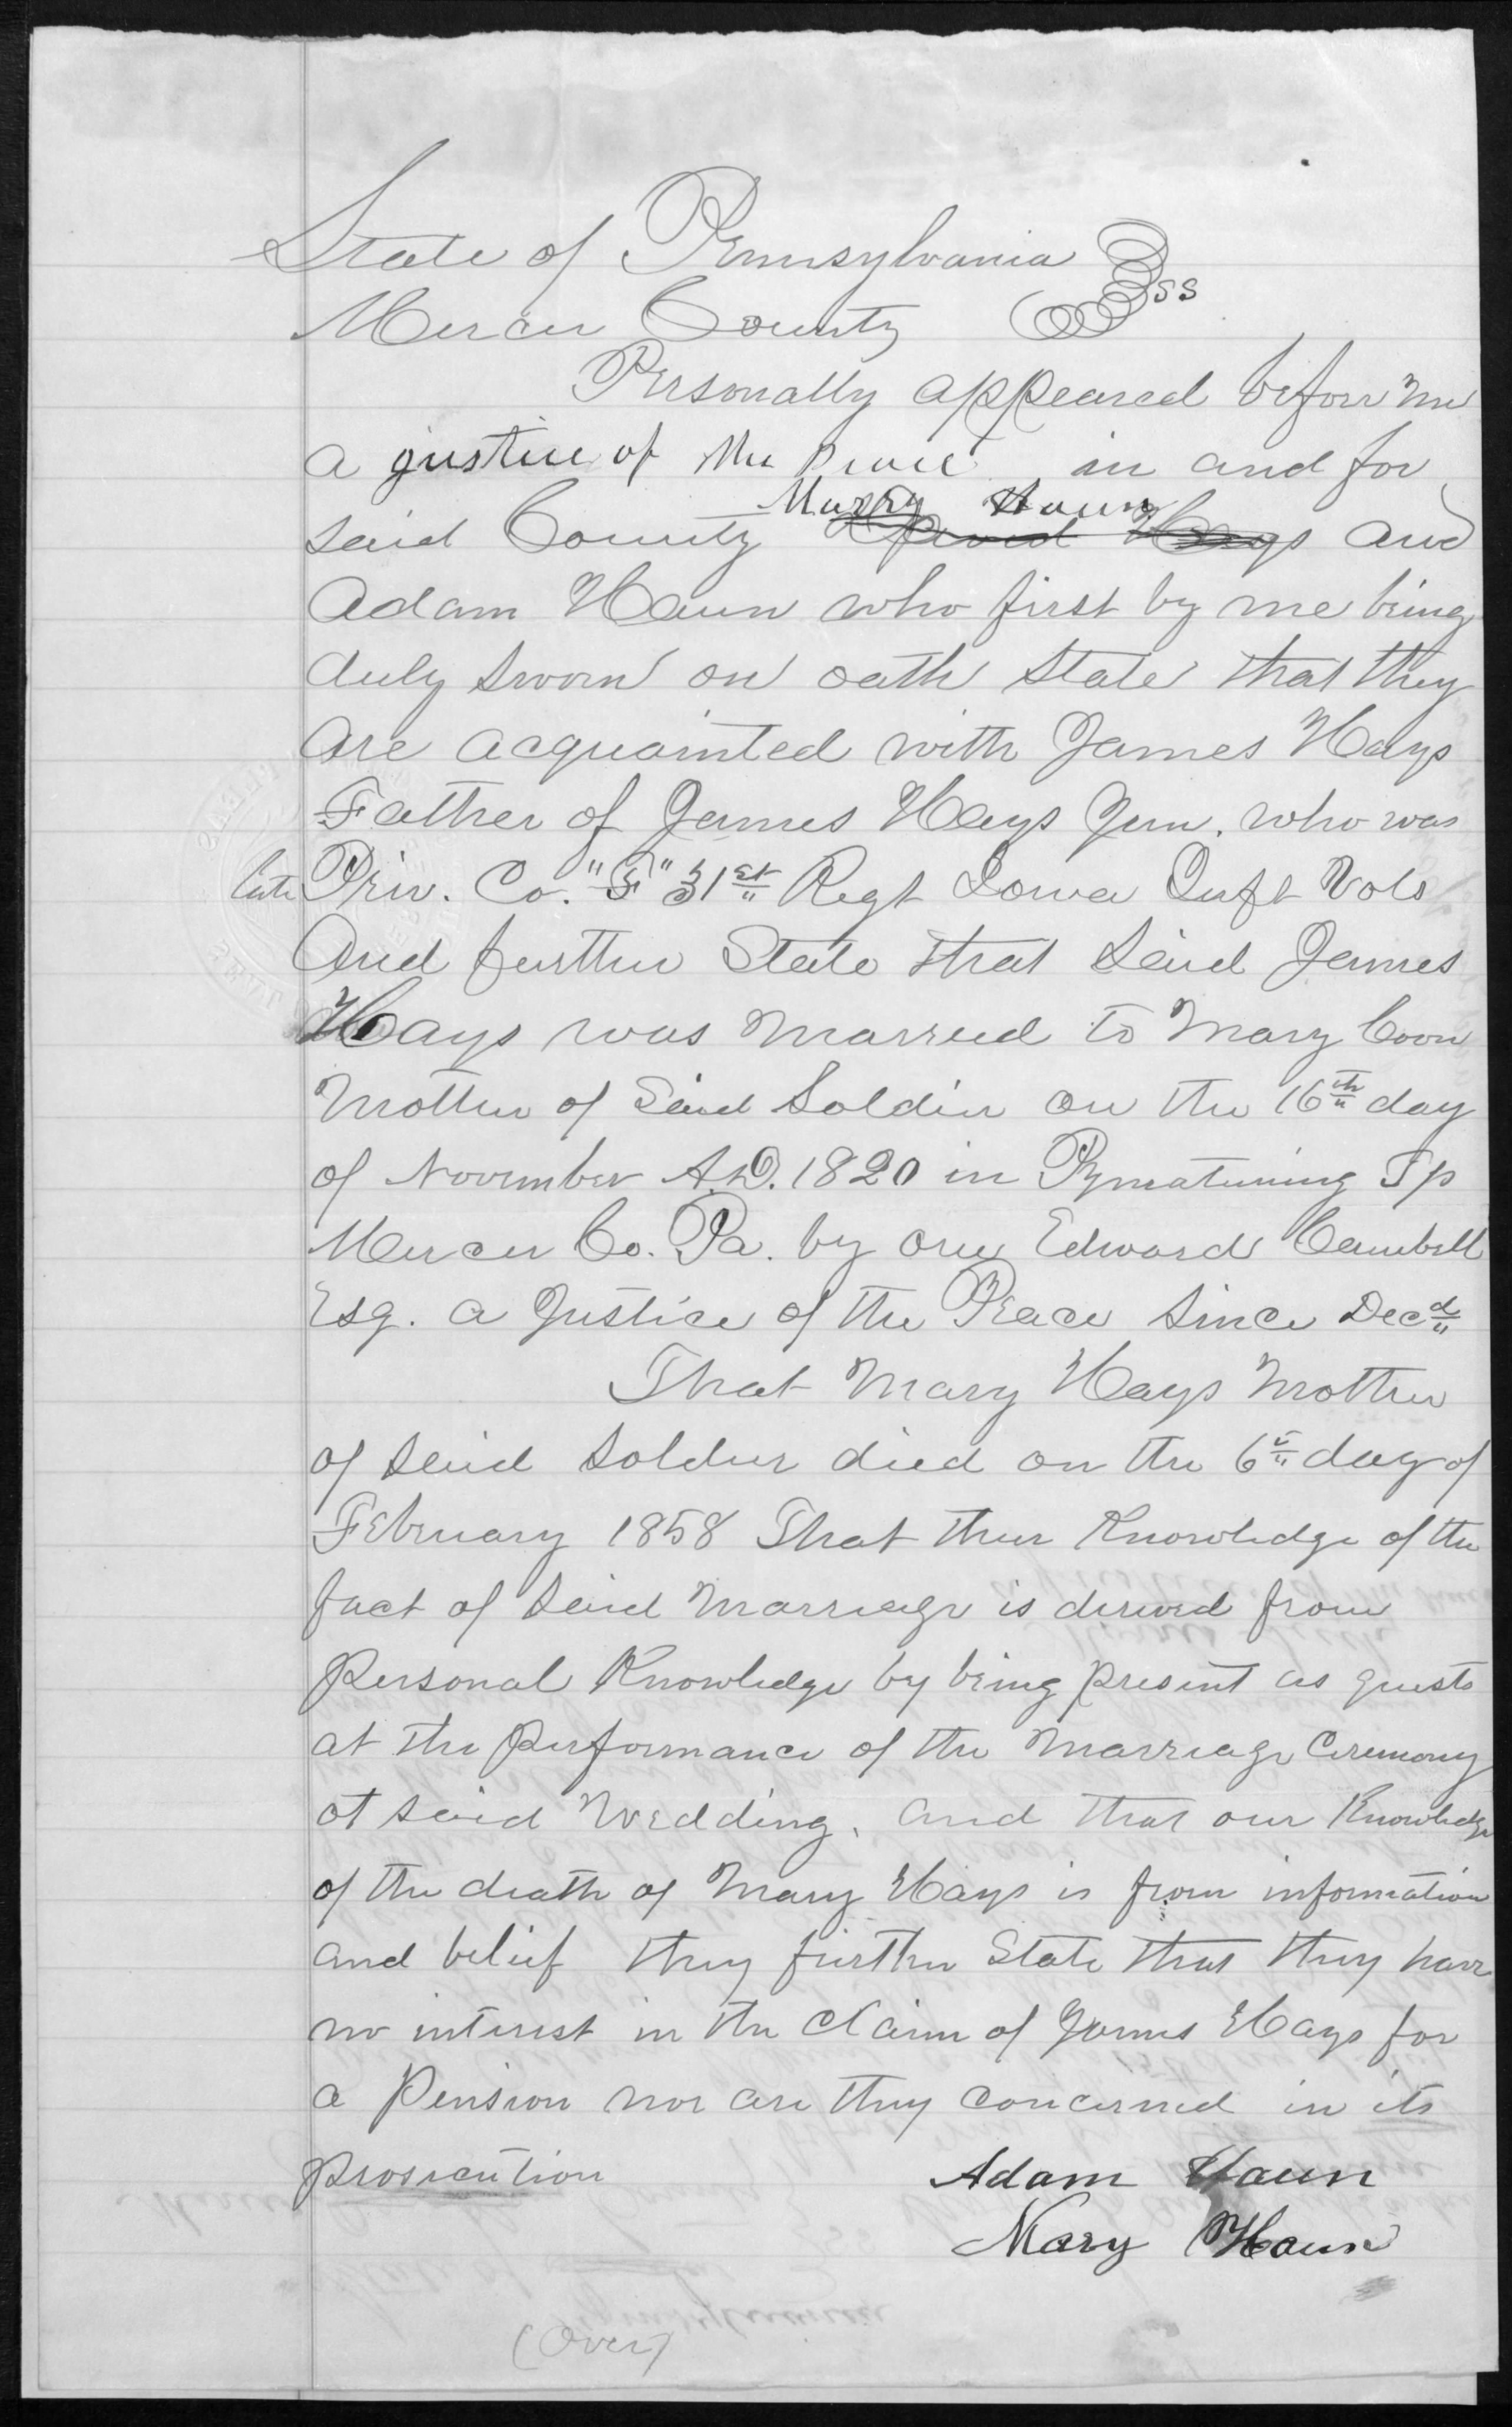 State of Pennsylvania
Mercer County ss
Personally appeared before me
a justice of the peace in and for
Mary Haun
said County David Hays and
Adam Haun who first by me being
duly sworn on oath state that they
are acquainted with James Hays
Father of James Hays Jun. who was
late Priv. Co. "F" 31st Regt Iowa Inft Vols
And further State that said James
Hays was married to Mary Coon
Mother of Said Soldier on the 16th day
of November A.D. 1820 in Pymatuning Tp
Mercer Co. Pa. by one Edward Cambell
Esq. a Justice of the Peace since Decd
That Mary Hays Mother
of said soldier died on the 6th day of
February 1858 That their Knowledge of the
fact of said Marriage is derived from
Personal Knowledge by being present as guests
at the performance of the Marriage Ceremony
at said Wedding, and that our Knowledge
of the death of Mary Hays is from information
and belief they further State that they have
no interest in the Claim of James Hays for
a Pension nor are they concerned in its
prosecution
Adam Haun
Mary Haun
(Over)